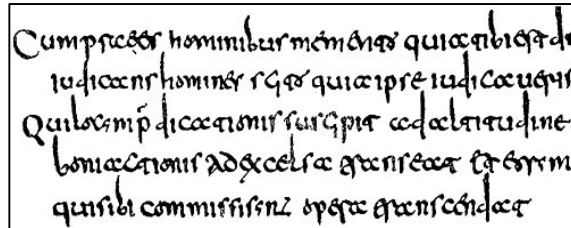 Cum praeees hominibus memento quia tibi est ds
iudicans homines scito quia ipse iudicaueris
Qui locum p̄dicationis suscipit ad altitudine
boni actionis ad excelsa transeat et eorum
qui sibi commissi sunt opera transcendat